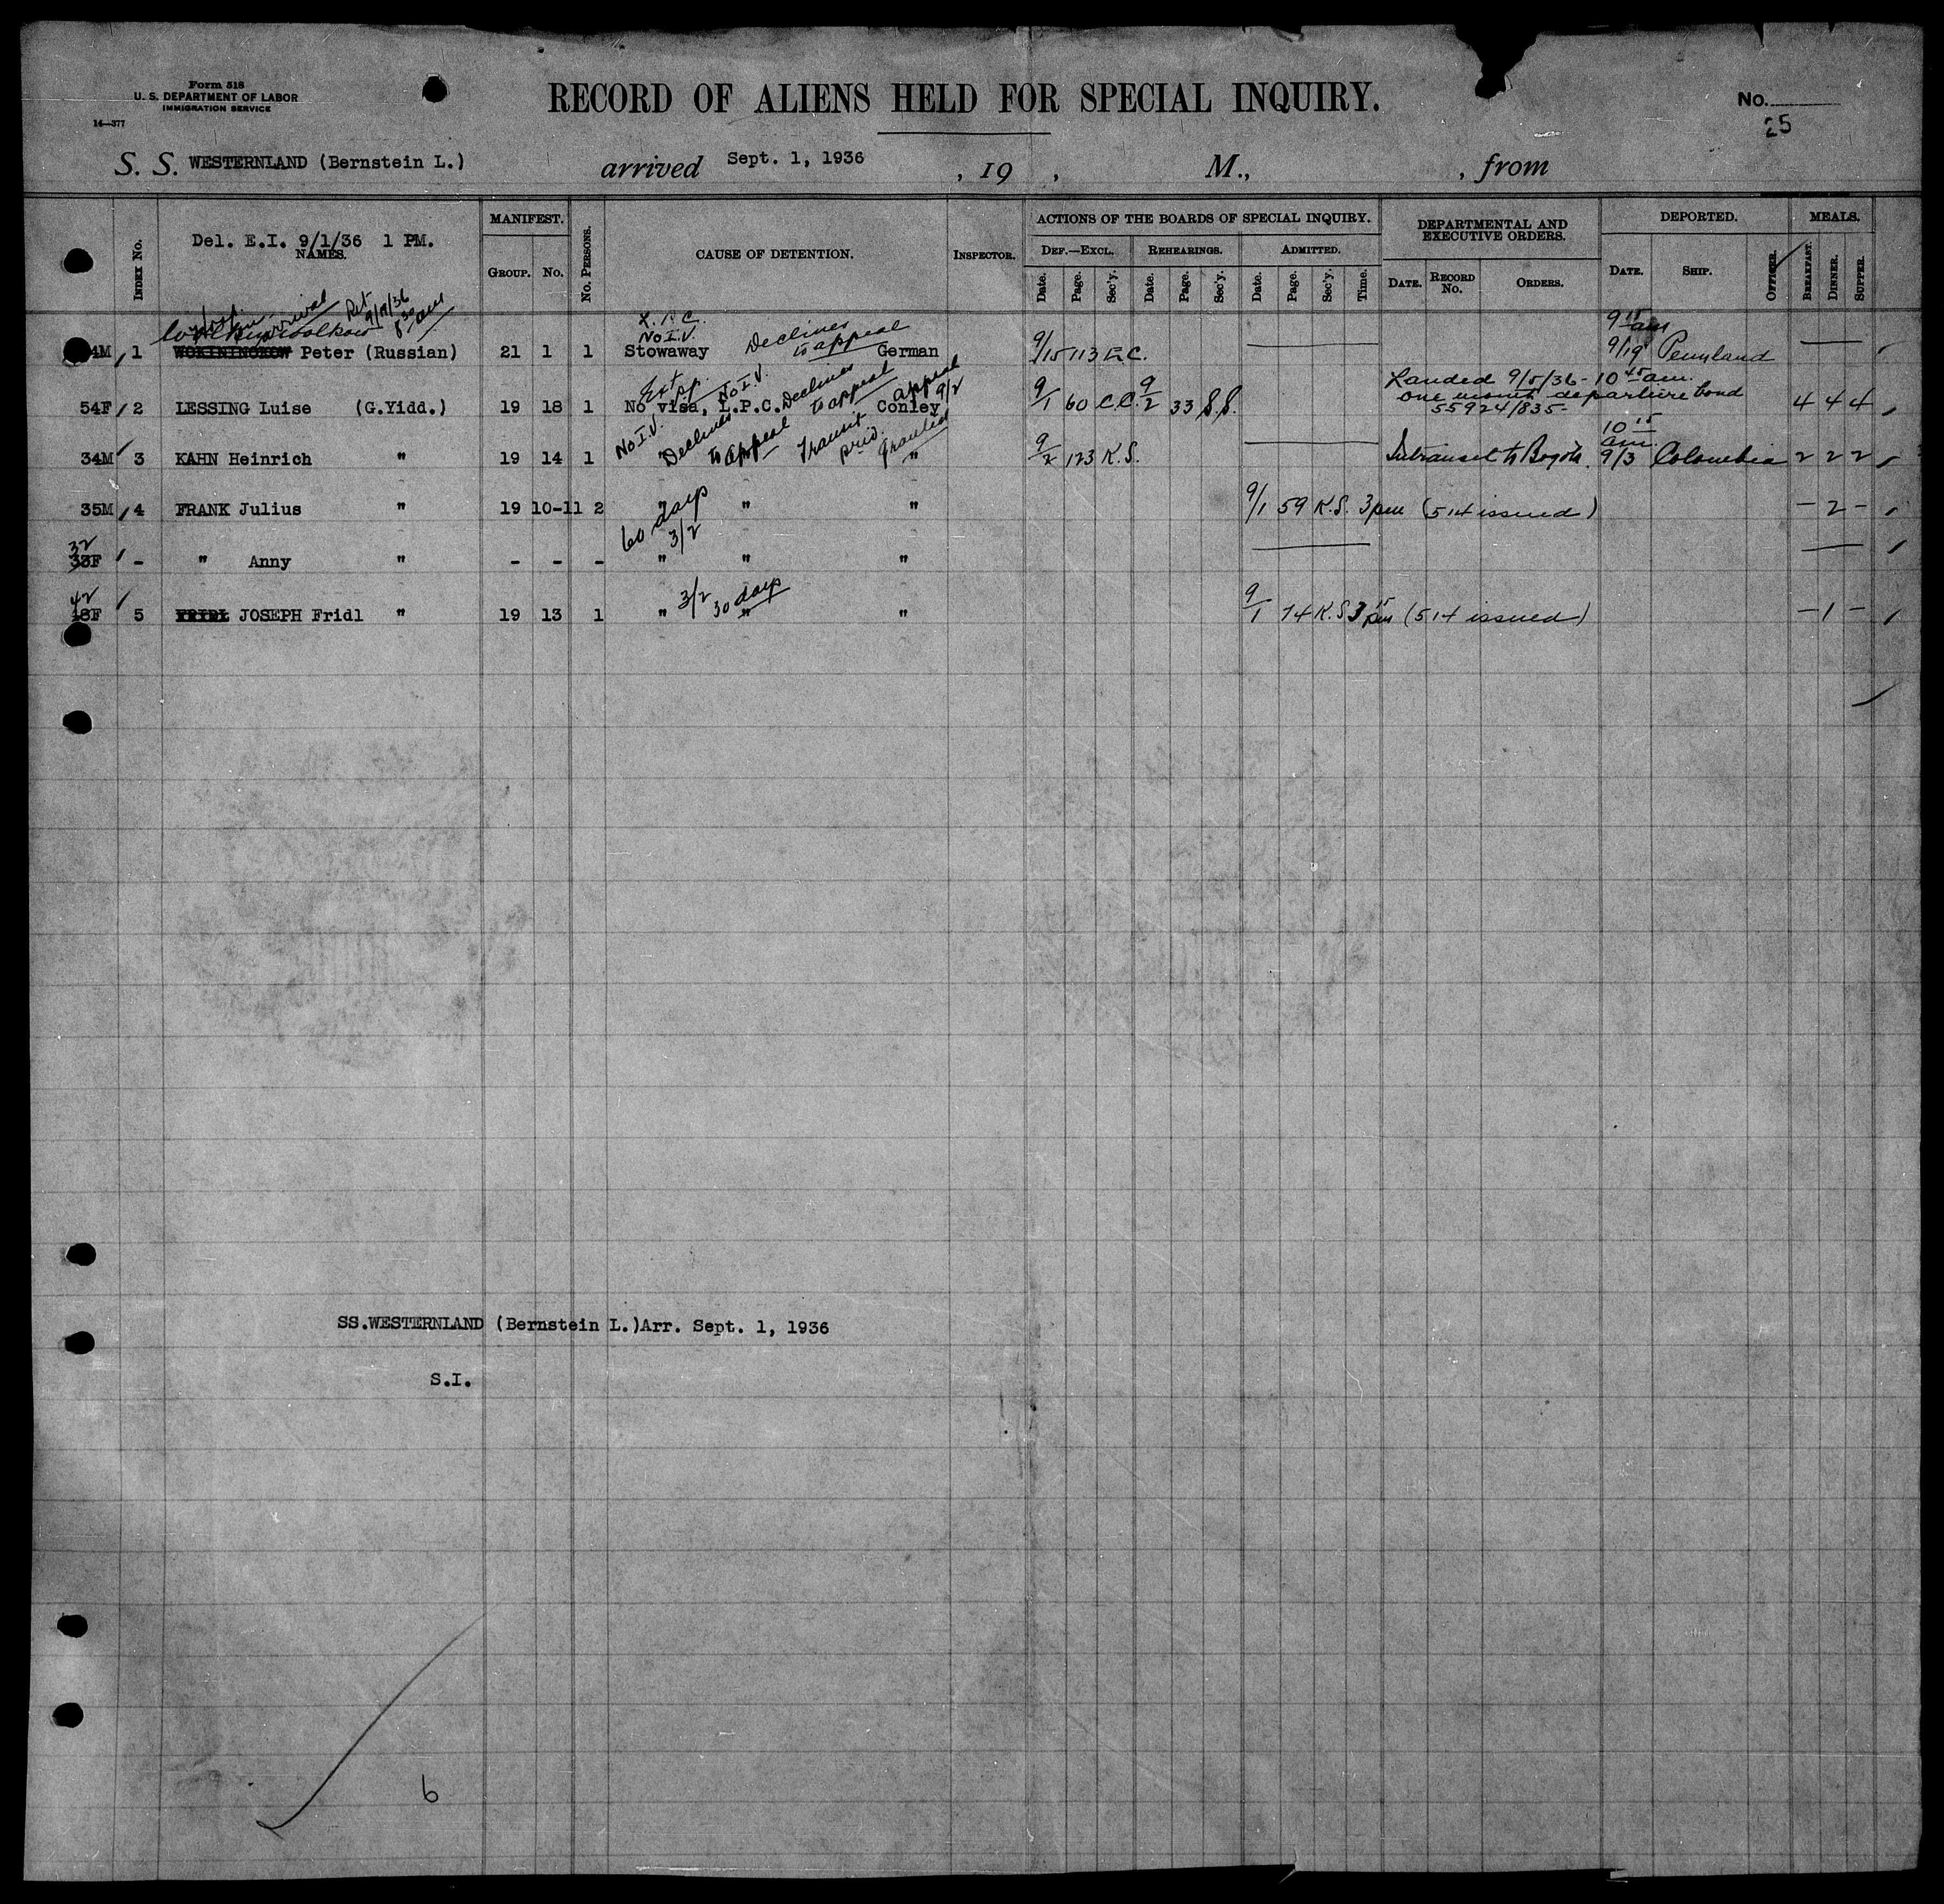 Form 518
U. S. DEPARTMENT OF LABOR
IMMIGRATION SERVICE
14—377
RECORD OF ALIENS HELD FOR SPECIAL INQUIRY.
No.
25
S. S. WESTERNLAND (Bernstein L.) arrived Sept. 1, 1936 , 19 , M., , from
Index No.
Del. E.I. 9/1/36 1 PM.
NAMES.
MANIFEST.
GROUP. No.
No. PERSONS.
CAUSE OF DETENTION.
INSPECTOR.
ACTIONS OF THE BOARDS OF SPECIAL INQUIRY.
DEF.—EXCL. REHEARINGS. ADMITTED.
Date. Page. Sec'y. Date. Page. Sec'y. Date. Page. Sec'y. Time.
DEPARTMENTAL AND
EXECUTIVE ORDERS.
DATE. RECORD No. ORDERS.
DEPORTED.
DATE. SHIP. OFFICER.
MEALS.
BREAKFAST. DINNER. SUPPER.
Hosp. on arrival Ret 9/19/36 8 30 am
L.P.C.
No I.V. Declines to appeal
9 15 am
4M 1 Peter (Russian) 21 1 1 Stowaway German 9/15 113 E.C. 9/19 Pennland
Ext pp. No I.V. Declines to appeal appeal 9/2
Landed 9/5/36 - 10 45 am.
one month departure bond
55924/835-
54F 2 LESSING Luise (G.Yidd.) 19 18 1 No visa, L.P.C. Conley 9/1 60 C.C. 9/2 33 S.S. 4 4 4
No I.V. Declines to appeal Transit priv. granted
10 15 am.
34M 3 KAHN Heinrich " 19 14 1 " " 9/2 123 K.S. In transit to Bogota. 9/3 Colombia 2 2 2
35M 4 FRANK Julius " 19 10-11 2 " " " 9/1 59 K.S. 3 pm (514 issued) - 2 -
60 days 3/2
32
33F - " Anny " - - - " " "
42
18F 5 JOSEPH Fridl " 19 13 1 " 3/2 30 days " " 9/1 74 K.S 3 15 pm (514 issued) - 1 -
SS.WESTERNLAND (Bernstein L.)Arr. Sept. 1, 1936
S.I.
6